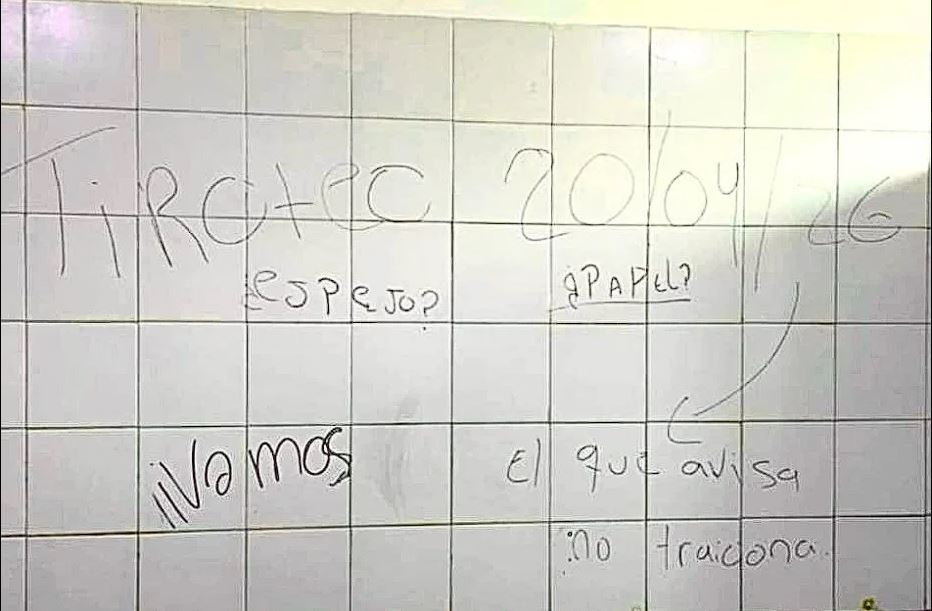 TiROteo 20/04/26
¿espejo? ¿PAPEL?
¡¡¡Vamos
El que avisa
no traiciona.